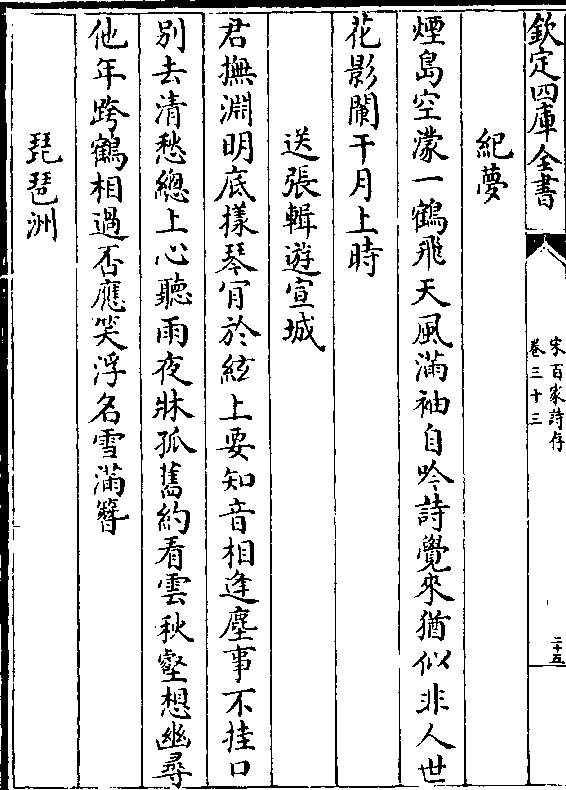 欽定四庫全書
宋百家詩存
卷三十三
二十五
紀夢
煙島空濛一鶴飛天風滿袖自吟詩覺來猶似非人世
花影闌干月上時
送張輯遊宣城
君撫淵明底樣琴肎於絃上要知音相逢塵事不挂口
別去清愁總上心聽雨夜牀孤舊約看雲秋壑想幽尋
他年跨鶴相過否應笑浮名雪滿簪
琵琶洲